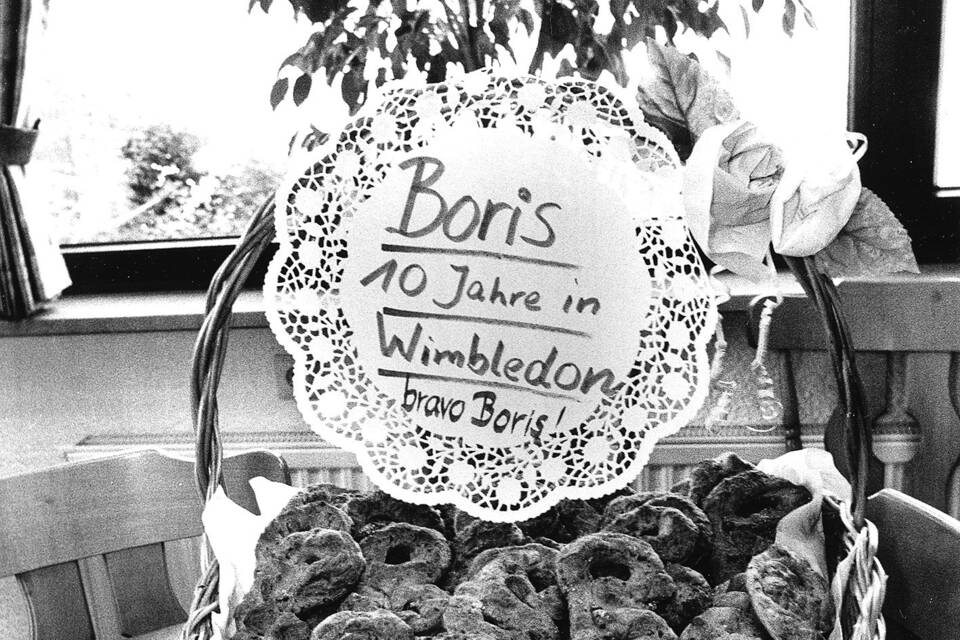 Boris
10 Jahre in
Wimbledon
bravo Boris!